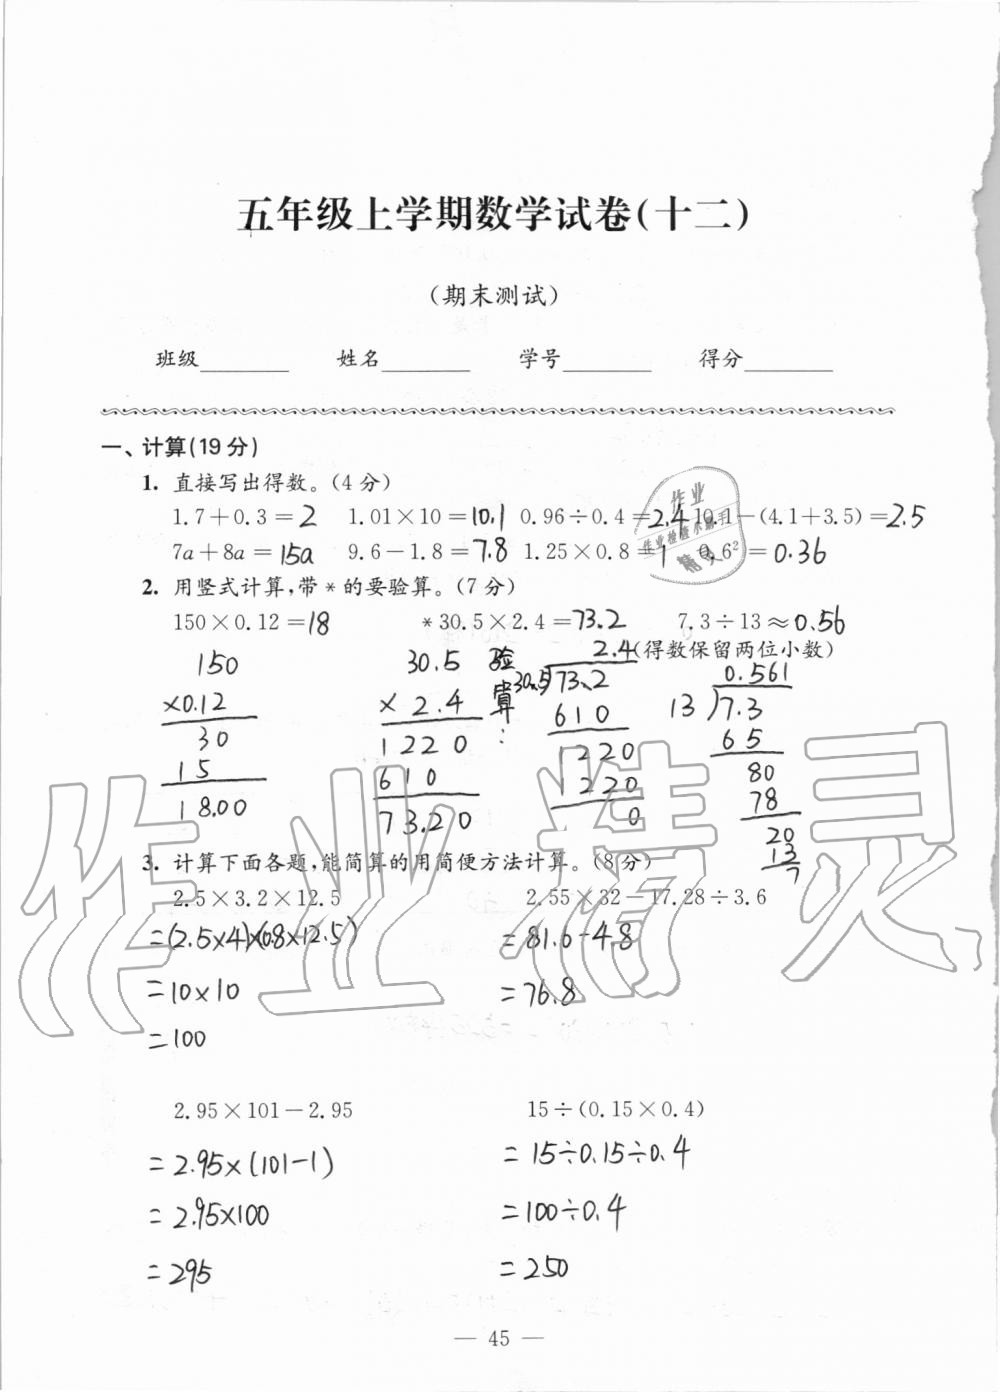 五年级上学期数学试卷(十二)
(期末测试)
班级 姓名 学号 得分
一、计算(19分)
1. 直接写出得数。(4分)
1.7+0.3=2 1.01×10=10.1 0.96÷0.4=2.4 10.1-(4.1+3.5)=2.5
7a+8a=15a 9.6-1.8=7.8 1.25×0.8=1 0.6²=0.36
2. 用竖式计算,带*的要验算。(7分)
150×0.12=18 *30.5×2.4=73.2 7.3÷13≈0.56
(得数保留两位小数)
150
×0.12
30
15
18.00
30.5
×2.4
1220
610
73.20
验算:
2.4
30.5)73.2
610
1220
1220
0
0.561
13)7.3
65
80
78
20
13
7
3. 计算下面各题,能简算的用简便方法计算。(8分)
2.5×3.2×12.5 2.55×32-17.28÷3.6
=(2.5×4)×(0.8×12.5) =81.6-4.8
=10×10 =76.8
=100
2.95×101-2.95 15÷(0.15×0.4)
=2.95×(101-1) =15÷0.15÷0.4
=2.95×100 =100÷0.4
=295 =250
— 45 —
作业精灵
作业
作业检查小帮手
精灵